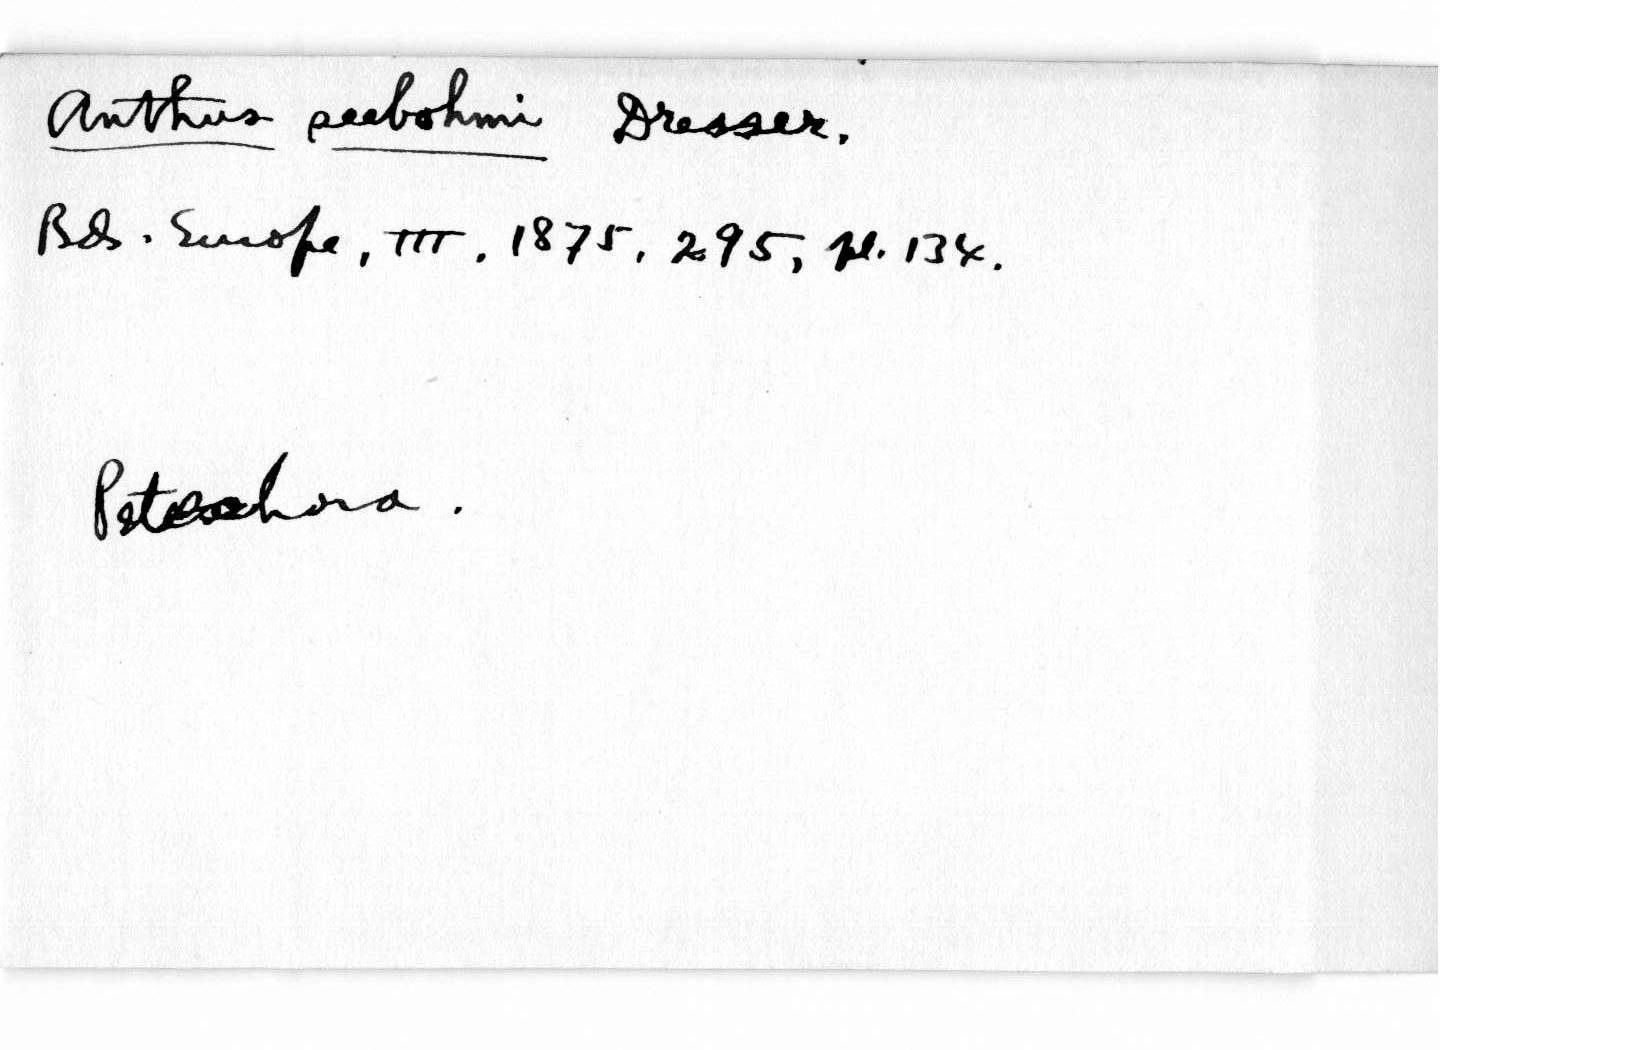 Anthus seebohmi Dresser.
Bds. Europe, III. 1875, 295, pl. 134.
Petschora.